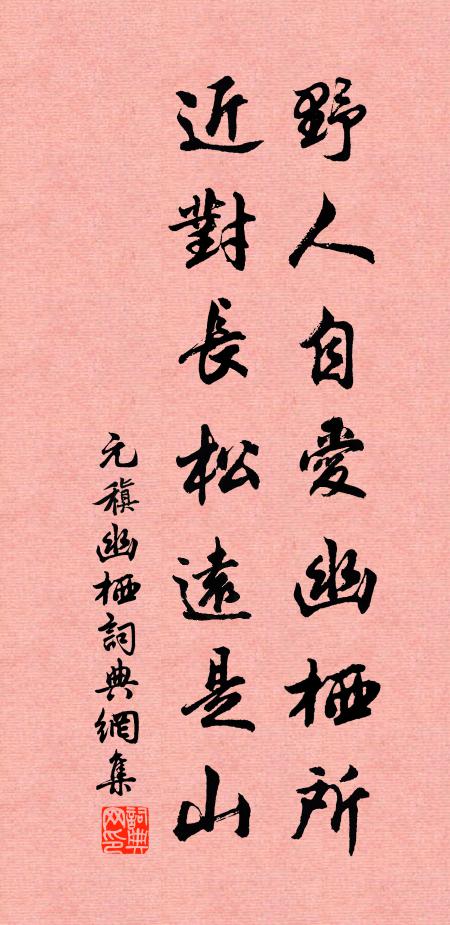 野人自愛幽栖所
近對長松遠是山
元稹幽栖詞典網集
詞典網印